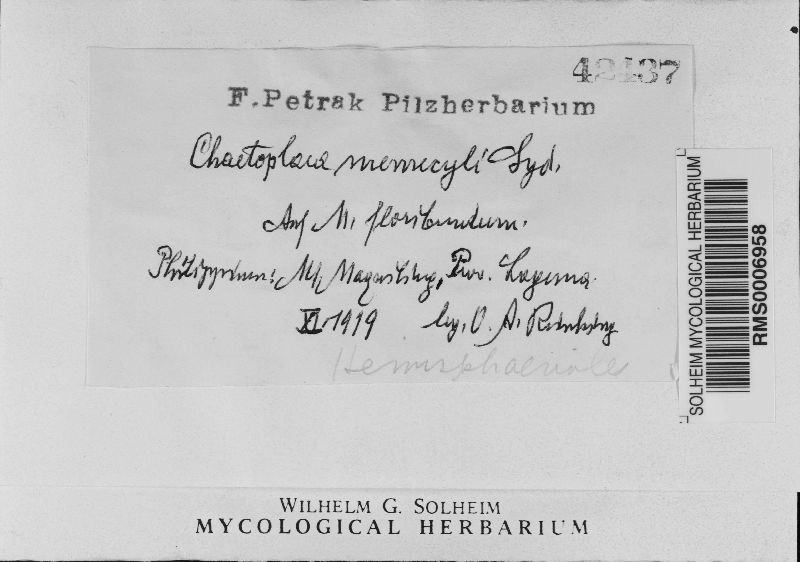 42137
F. Petrak Pilzherbarium
Chaetoplaca memecyli Syd.
Auf M. floribundum.
Philippinen: Mt. Maquiling, Prov. Laguna.
XI. 1919 leg. O. A. Reinking
Hemisphaeriales
SOLHEIM MYCOLOGICAL HERBARIUM
RMS0006958
WILHELM G. SOLHEIM
MYCOLOGICAL HERBARIUM